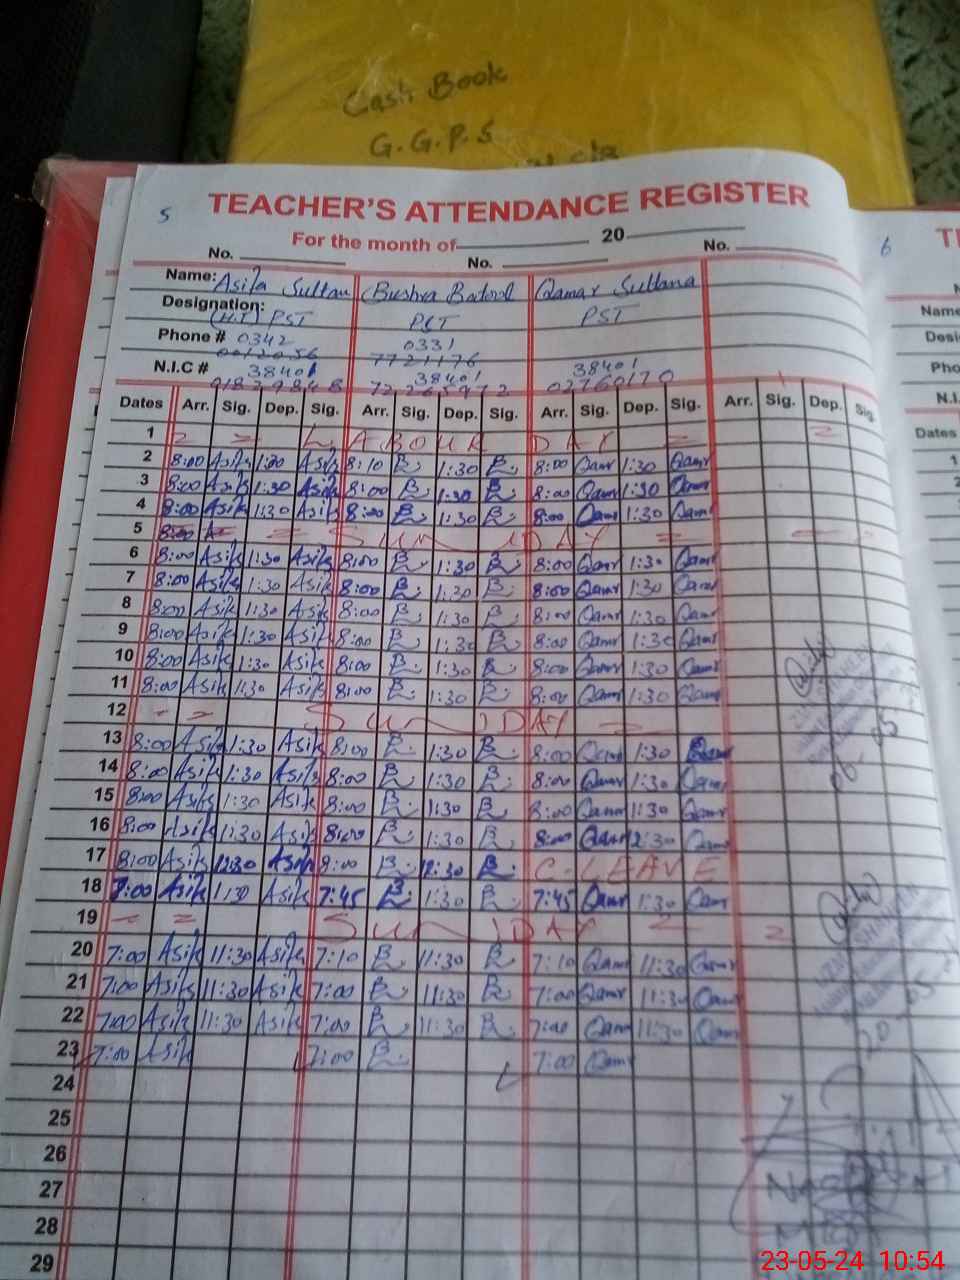 Cash Book
G.G.P.S
5 TEACHER'S ATTENDANCE REGISTER 6
For the month of 20
No. No. No.
Name: Asifa Sultan Bushra Batool Qamar Sultana
Designation: (H.T) PST PST PST
Phone # 0342 0331
7721176
N.I.C # 38401 38401 38401
02760170
Dates Arr. Sig. Dep. Sig. Arr. Sig. Dep. Sig. Arr. Sig. Dep. Sig. Arr. Sig. Dep. Sig.
1 = = LABOUR DAY = =
2 8:00 Asifa 1:30 Asifa 8:10 B 1:30 B 8:00 Qamr 1:30 Qamr
3 8:00 Asifa 1:30 Asifa 8:00 B 1:30 B 8:00 Qamr 1:30 Qamr
4 8:00 Asifa 1:30 Asifa 8:00 B 1:30 B 8:00 Qamr 1:30 Qamr
5 = SUNDAY = =
6 8:00 Asifa 1:30 Asifa 8:00 B 1:30 B 8:00 Qamr 1:30 Qamr
7 8:00 Asifa 1:30 Asifa 8:00 B 1:30 B 8:00 Qamr 1:30 Qamr
8 8:00 Asifa 1:30 Asifa 8:00 B 1:30 B 8:00 Qamr 1:30 Qamr
9 8:00 Asifa 1:30 Asifa 8:00 B 1:30 B 8:00 Qamr 1:30 Qamr
10 8:00 Asifa 1:30 Asifa 8:00 B 1:30 B 8:00 Qamr 1:30 Qamr
11 8:00 Asifa 1:30 Asifa 8:00 B 1:30 B 8:00 Qamr 1:30 Qamr
12 - = SUNDAY =
13 8:00 Asifa 1:30 Asifa 8:00 B 1:30 B 8:00 Qamr 1:30 Qamr
14 8:00 Asifa 1:30 Asifa 8:00 B 1:30 B 8:00 Qamr 1:30 Qamr
15 8:00 Asifa 1:30 Asifa 8:00 B 1:30 B 8:00 Qamr 1:30 Qamr
16 8:00 Asifa 1:30 Asifa 8:00 B 1:30 B 8:00 Qamr 12:30 Qamr
17 8:00 Asifa 12:30 Asifa 8:00 B 12:30 B C-LEAVE
18 7:00 Asifa 1:30 Asifa 7:45 B 1:30 B 7:45 Qamr 1:30 Qamr
19 - = SUNDAY = =
20 7:00 Asifa 11:30 Asifa 7:10 B 11:30 B 7:10 Qamr 11:30 Qamr
21 7:00 Asifa 11:30 Asifa 7:00 B 11:30 B 7:00 Qamr 11:30 Qamr
22 7:00 Asifa 11:30 Asifa 7:00 B 11:30 B 7:00 Qamr 11:30 Qamr
23 7:00 Asifa 7:00 B 7:00 Qamr
24
25
26
27
28
29
23-05-24 10:54